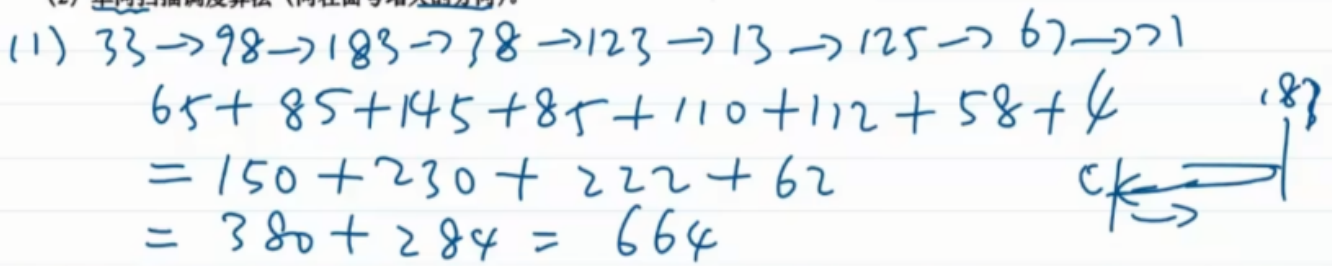 （2）单向扫描调度算法（向柱面号增大的方向）。
(1) 33→98→183→38→123→13→125→67→71
65+85+145+85+110+112+58+4
183
=150+230+222+62
=380+284=664